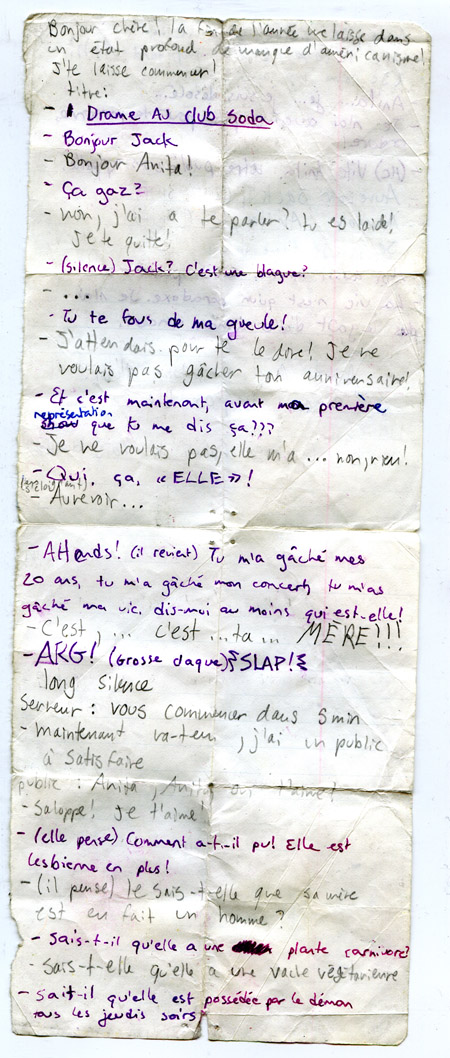 Bonjour chère! la fin de l'année me laisse dans
un état profond de manque d'américanisme!
J'te laisse commencer!
titre:
- Drame Au club Soda
- Bonjour Jack
- Bonjour Anita!
- Ça gaz?
- non, j'ai a te parler? tu es laide!
Je te quitte!
- (silence) Jack? C'est une blague?
- ...
- Tu te fous de ma gueule!
- J'attendais pour te le dire! Je ne
voulais pas gâcher ton anniversaire!
- Et c'est maintenant, avant ma première
représentation
que tu me dis ça???
- Je ne voulais pas, elle m'a ... non, rien!
- Qui, ça, «ELLE»!
- Aurevoir...
- Attends! (il revient) Tu m'a gâché mes
20 ans, tu m'a gâché mon concert, tu m'as
gâché ma vie. dis-moi au moins qui est-elle!
- C'est, ... c'est ...ta... MÈRE!!!
- ARG! (Grosse claque) SLAP!
long silence
Serveur: vous commencer dans 5 min
- maintenant va-t'en, j'ai un public
à satisfaire
public: Anita, Anita on t'aime!
- Saloppe! Je t'aime!
- (elle pense) Comment a-t-il pu! Elle est
lesbienne en plus!
- (il pense) le sais-t-elle que sa mère
est en fait un homme?
- Sais-t-il qu'elle a une plante carnivore?
- Sais-t-elle qu'elle a une vache végétarienne
- Sait-il qu'elle est possédée par le démon
tous les jeudis soirs